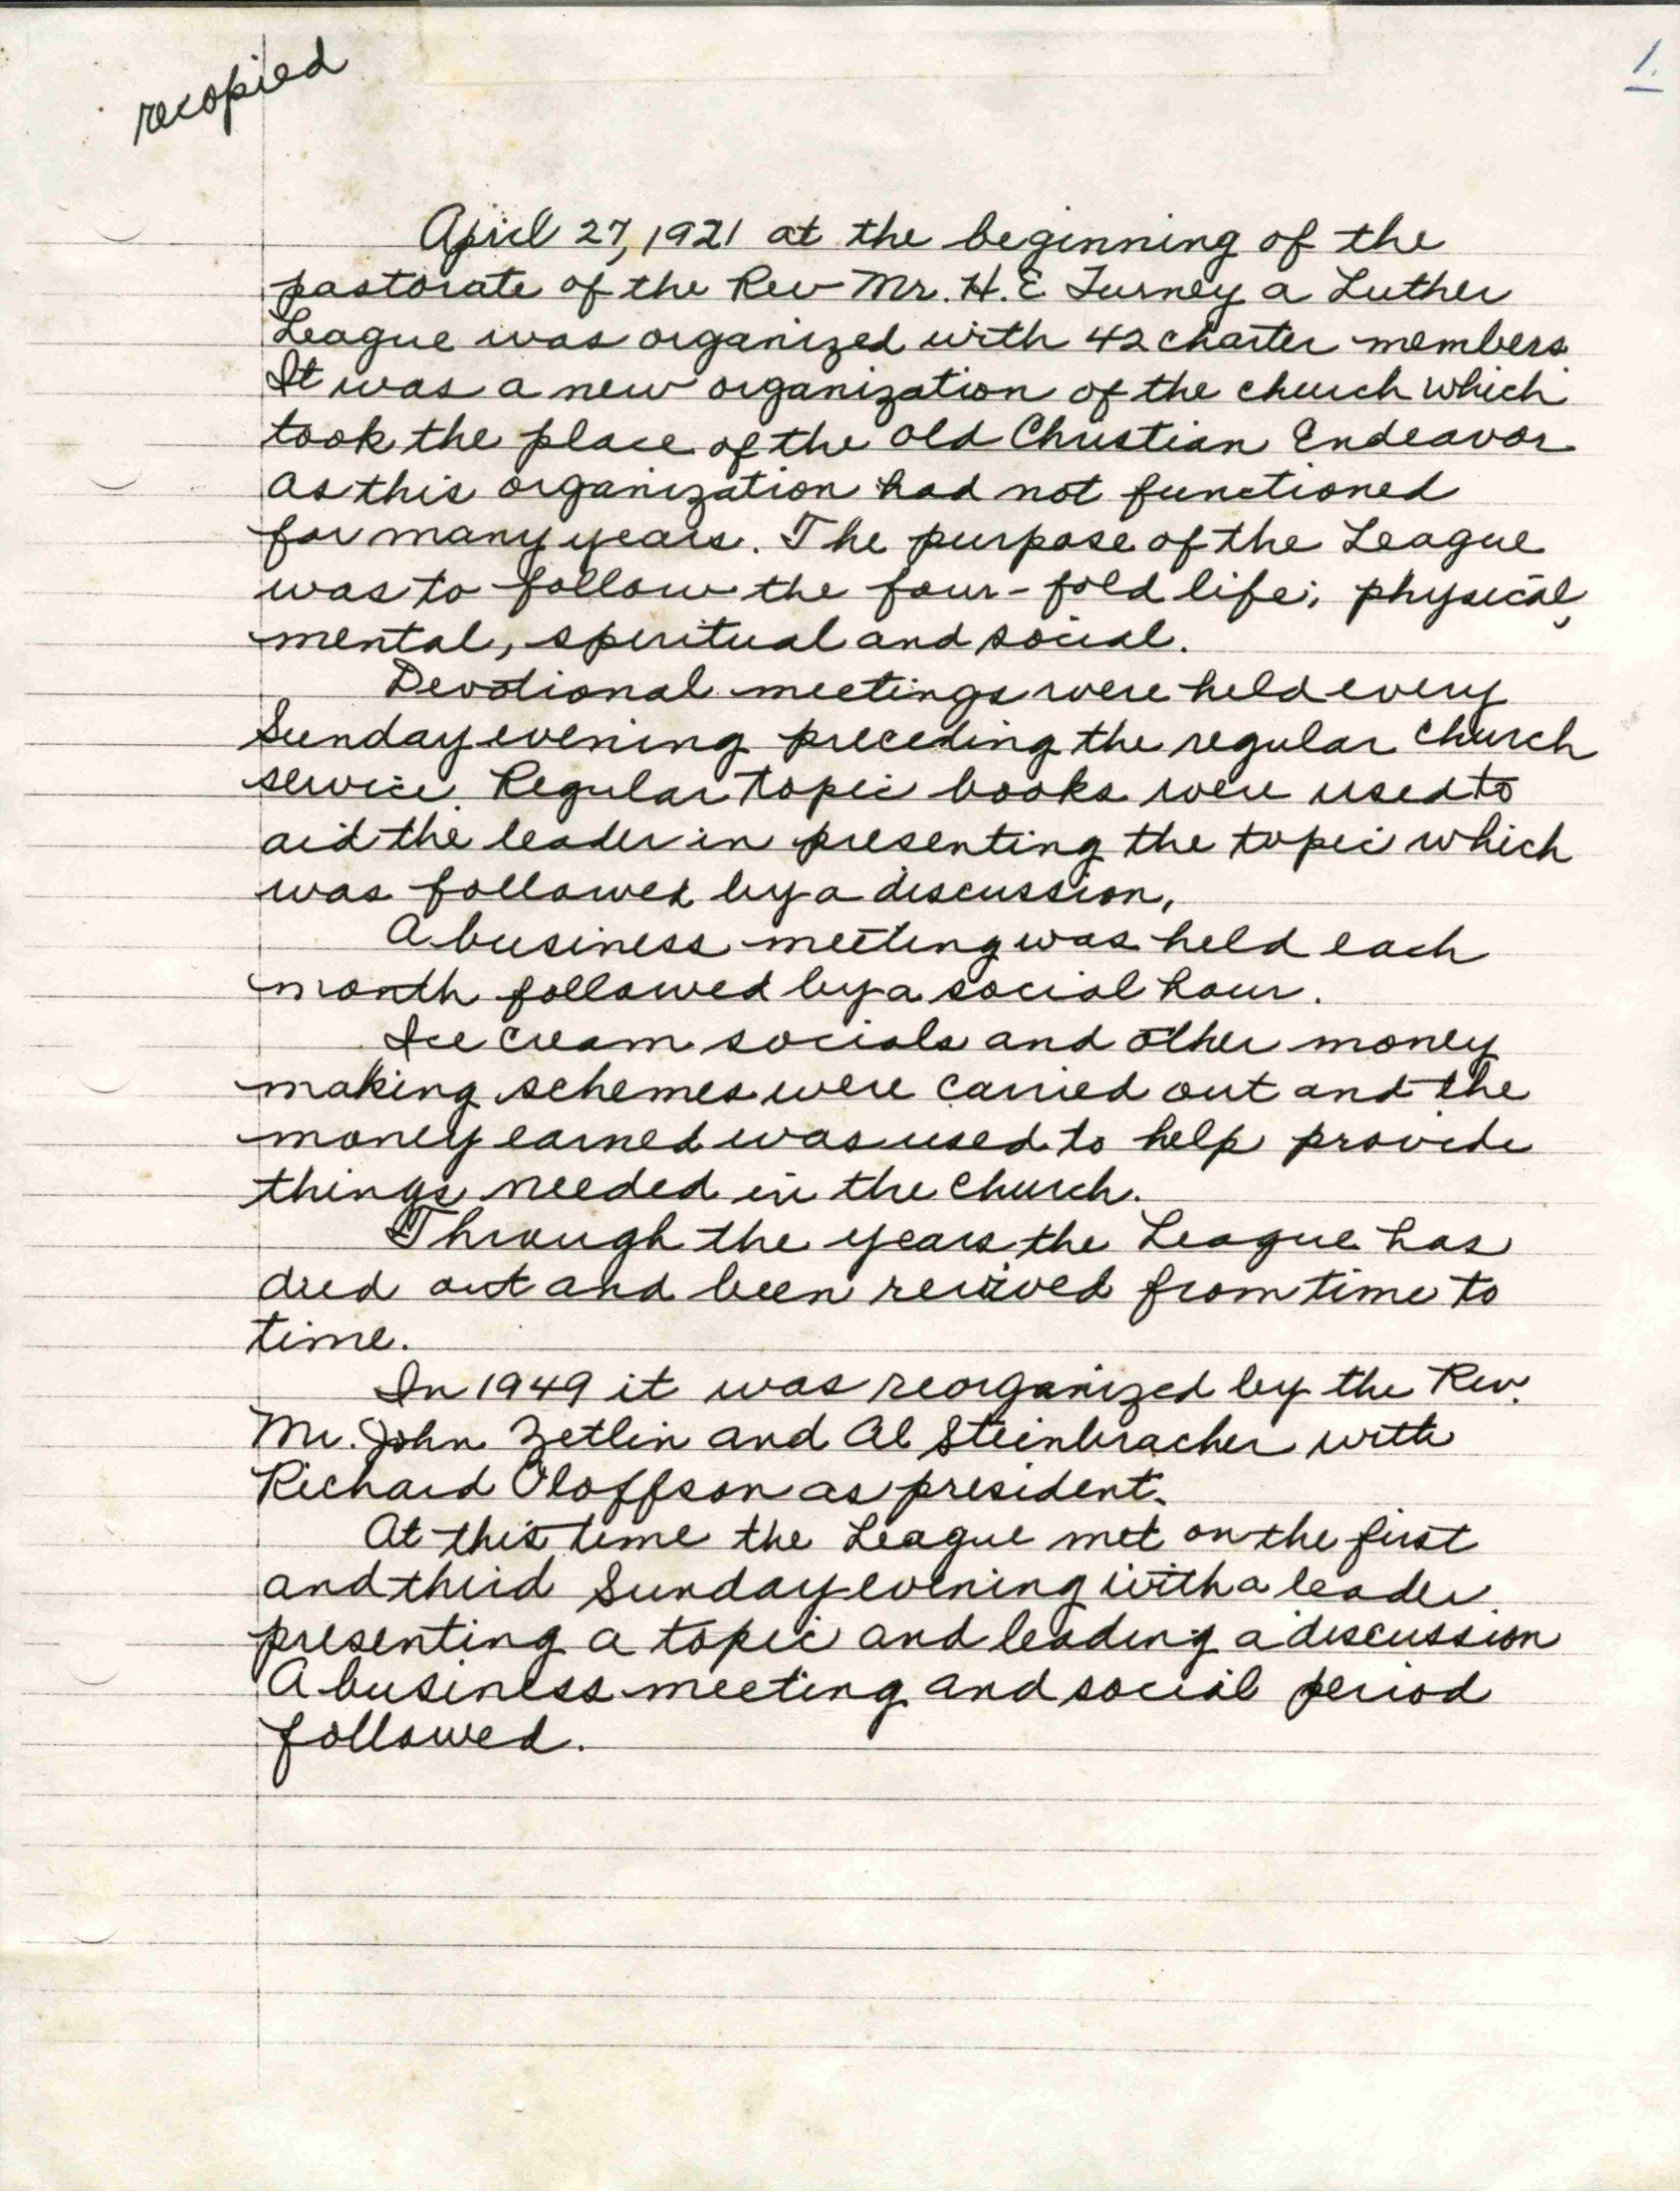 recopied
1.
April 27, 1921 at the beginning of the
pastorate of the Rev Mr. H. E Turney a Luther
League was organized with 42 charter members.
It was a new organization of the church which
took the place of the old Christian Endeavor
as this organization had not functioned
for many years. The purpose of the League
was to follow the four-fold life; physical,
mental, spiritual and social.
Devotional meetings were held every
Sunday evening preceding the regular church
service. Regular topic books were used to
aid the leader in presenting the topic which
was followed by a discussion,
A business meeting was held each
month followed by a social hour.
Ice cream socials and other money
making schemes were carried out and the
money earned was used to help provide
things needed in the church.
Through the years the League has
died out and been revived from time to
time.
In 1949 it was reorganized by the Rev.
Mr. John Zetlin and Al Steinbracher with
Richard Oloffson as president.
At this time the League met on the first
and third Sunday evening with a leader
presenting a topic and leading a discussion
A business meeting and social period
followed.